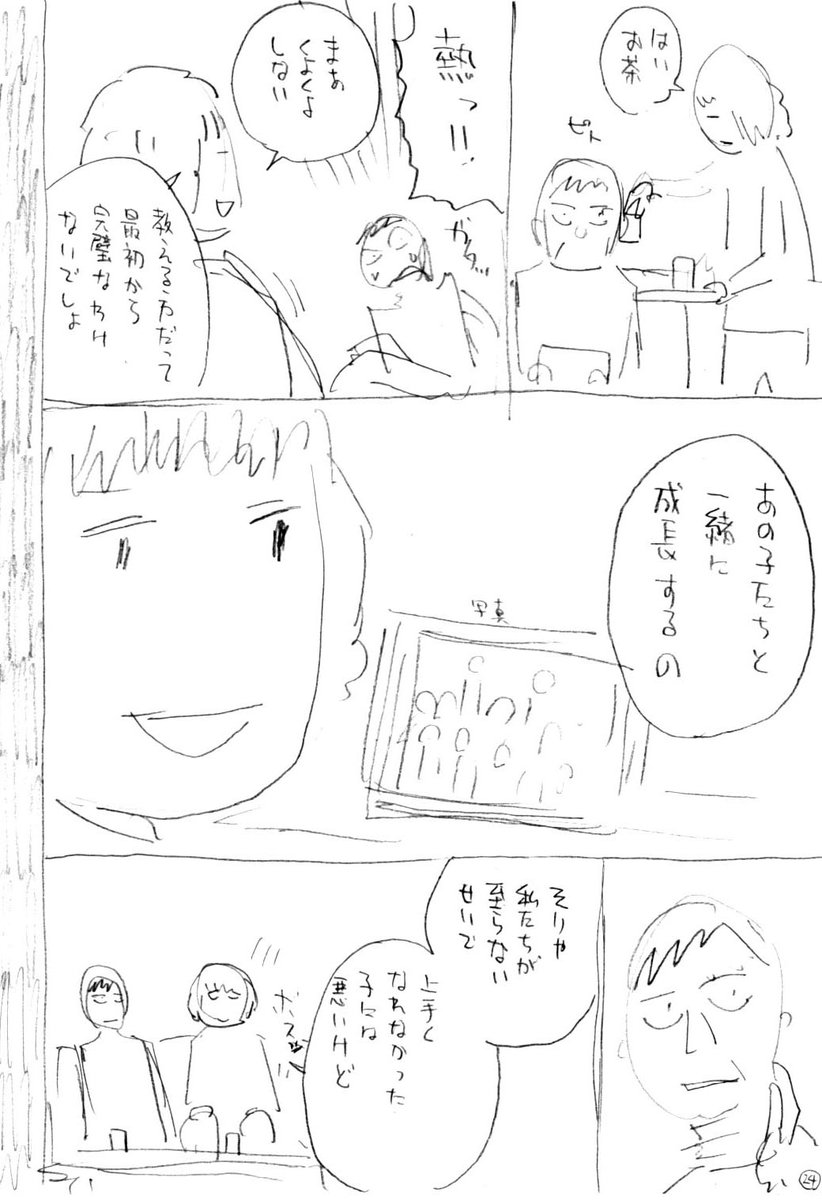 はい
お茶
ピト
熱っ!!
ガタッ
まあ
くよくよ
しない
教える方だって
最初から
完璧なわけ
ないでしょ
あの子たちと
一緒に
成長するの
写真
そりゃ
私たちが
至らない
せいで
上手く
なれなかった
子には
悪いけど
ボスッ
24